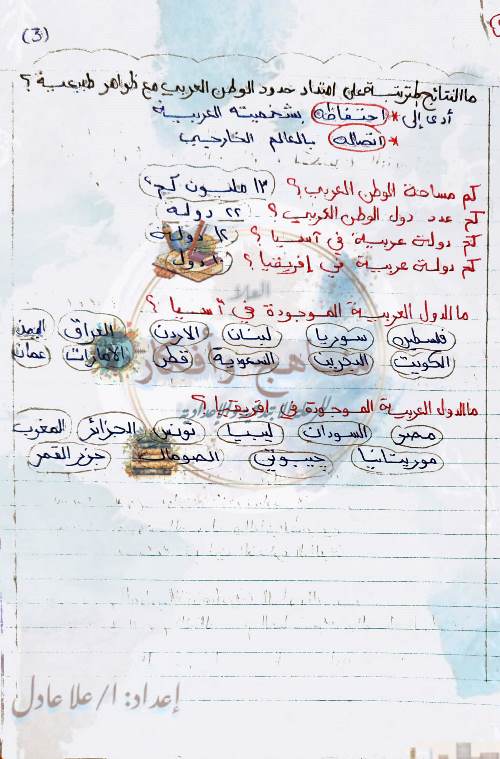 (3)
ما النتائج المترتبة على امتداد حدود الوطن العربي مع ظواهر طبيعية ؟
أدى إلى * احتفاظه بشخصيته العربية
* اتصاله بالعالم الخارجي
كم مساحة الوطن العربي ؟ ١٣ مليون كم٢
كم عدد دول الوطن العربي ؟ ٢٢ دولة
كم دولة عربية في آسيا ؟ ١٢ دولة
كم دولة عربية في إفريقيا ؟ ١٠ دول
ما الدول العربية الموجودة في آسيا ؟
فلسطين سوريا لبنان الاردن العراق اليمن
الكويت البحرين السعودية قطر الامارات عمان
ما الدول العربية الموجودة في افريقيا ؟
مصر السودان ليبيا تونس الجزائر المغرب
موريتانيا جيبوتي الصومال جزر القمر
إعداد: ا/ علا عادل